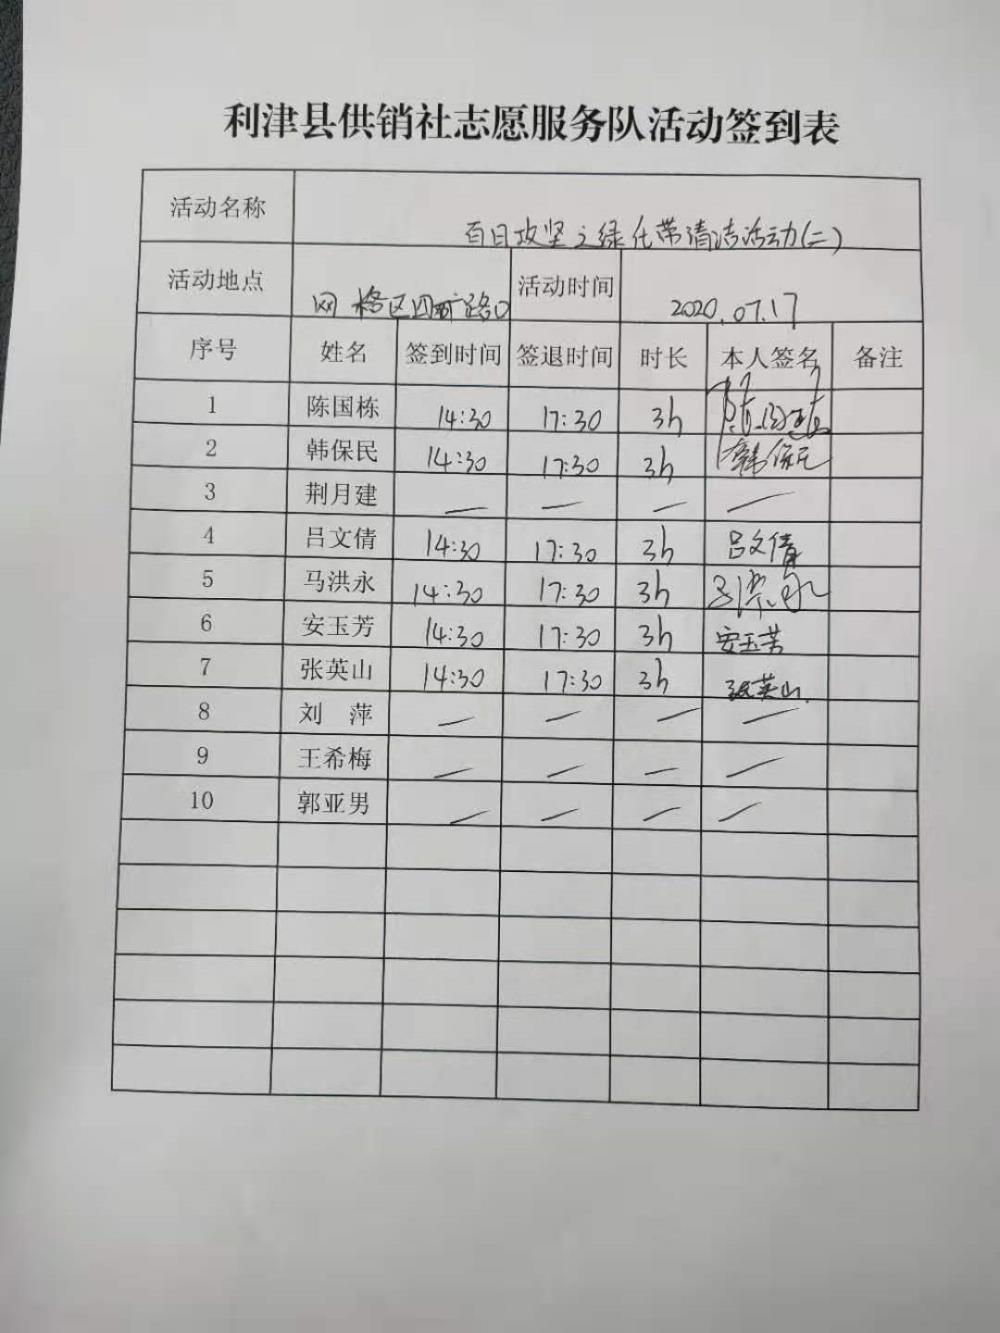 利津县供销社志愿服务队活动签到表
活动名称 百日攻坚之绿化带清洁活动(二)
活动地点 网格区四 路口 活动时间 2020.07.17
序号 姓名 签到时间 签退时间 时长 本人签名 备注
1 陈国栋 14:30 17:30 3h 陈国栋
2 韩保民 14:30 17:30 3h 韩保民
3 荆月建 — — — —
4 吕文倩 14:30 17:30 3h 吕文倩
5 马洪永 14:30 17:30 3h 马洪永
6 安玉芳 14:30 17:30 3h 安玉芳
7 张英山 14:30 17:30 3h 张英山
8 刘 萍 — — — —
9 王希梅 — — — —
10 郭亚男 — — — —